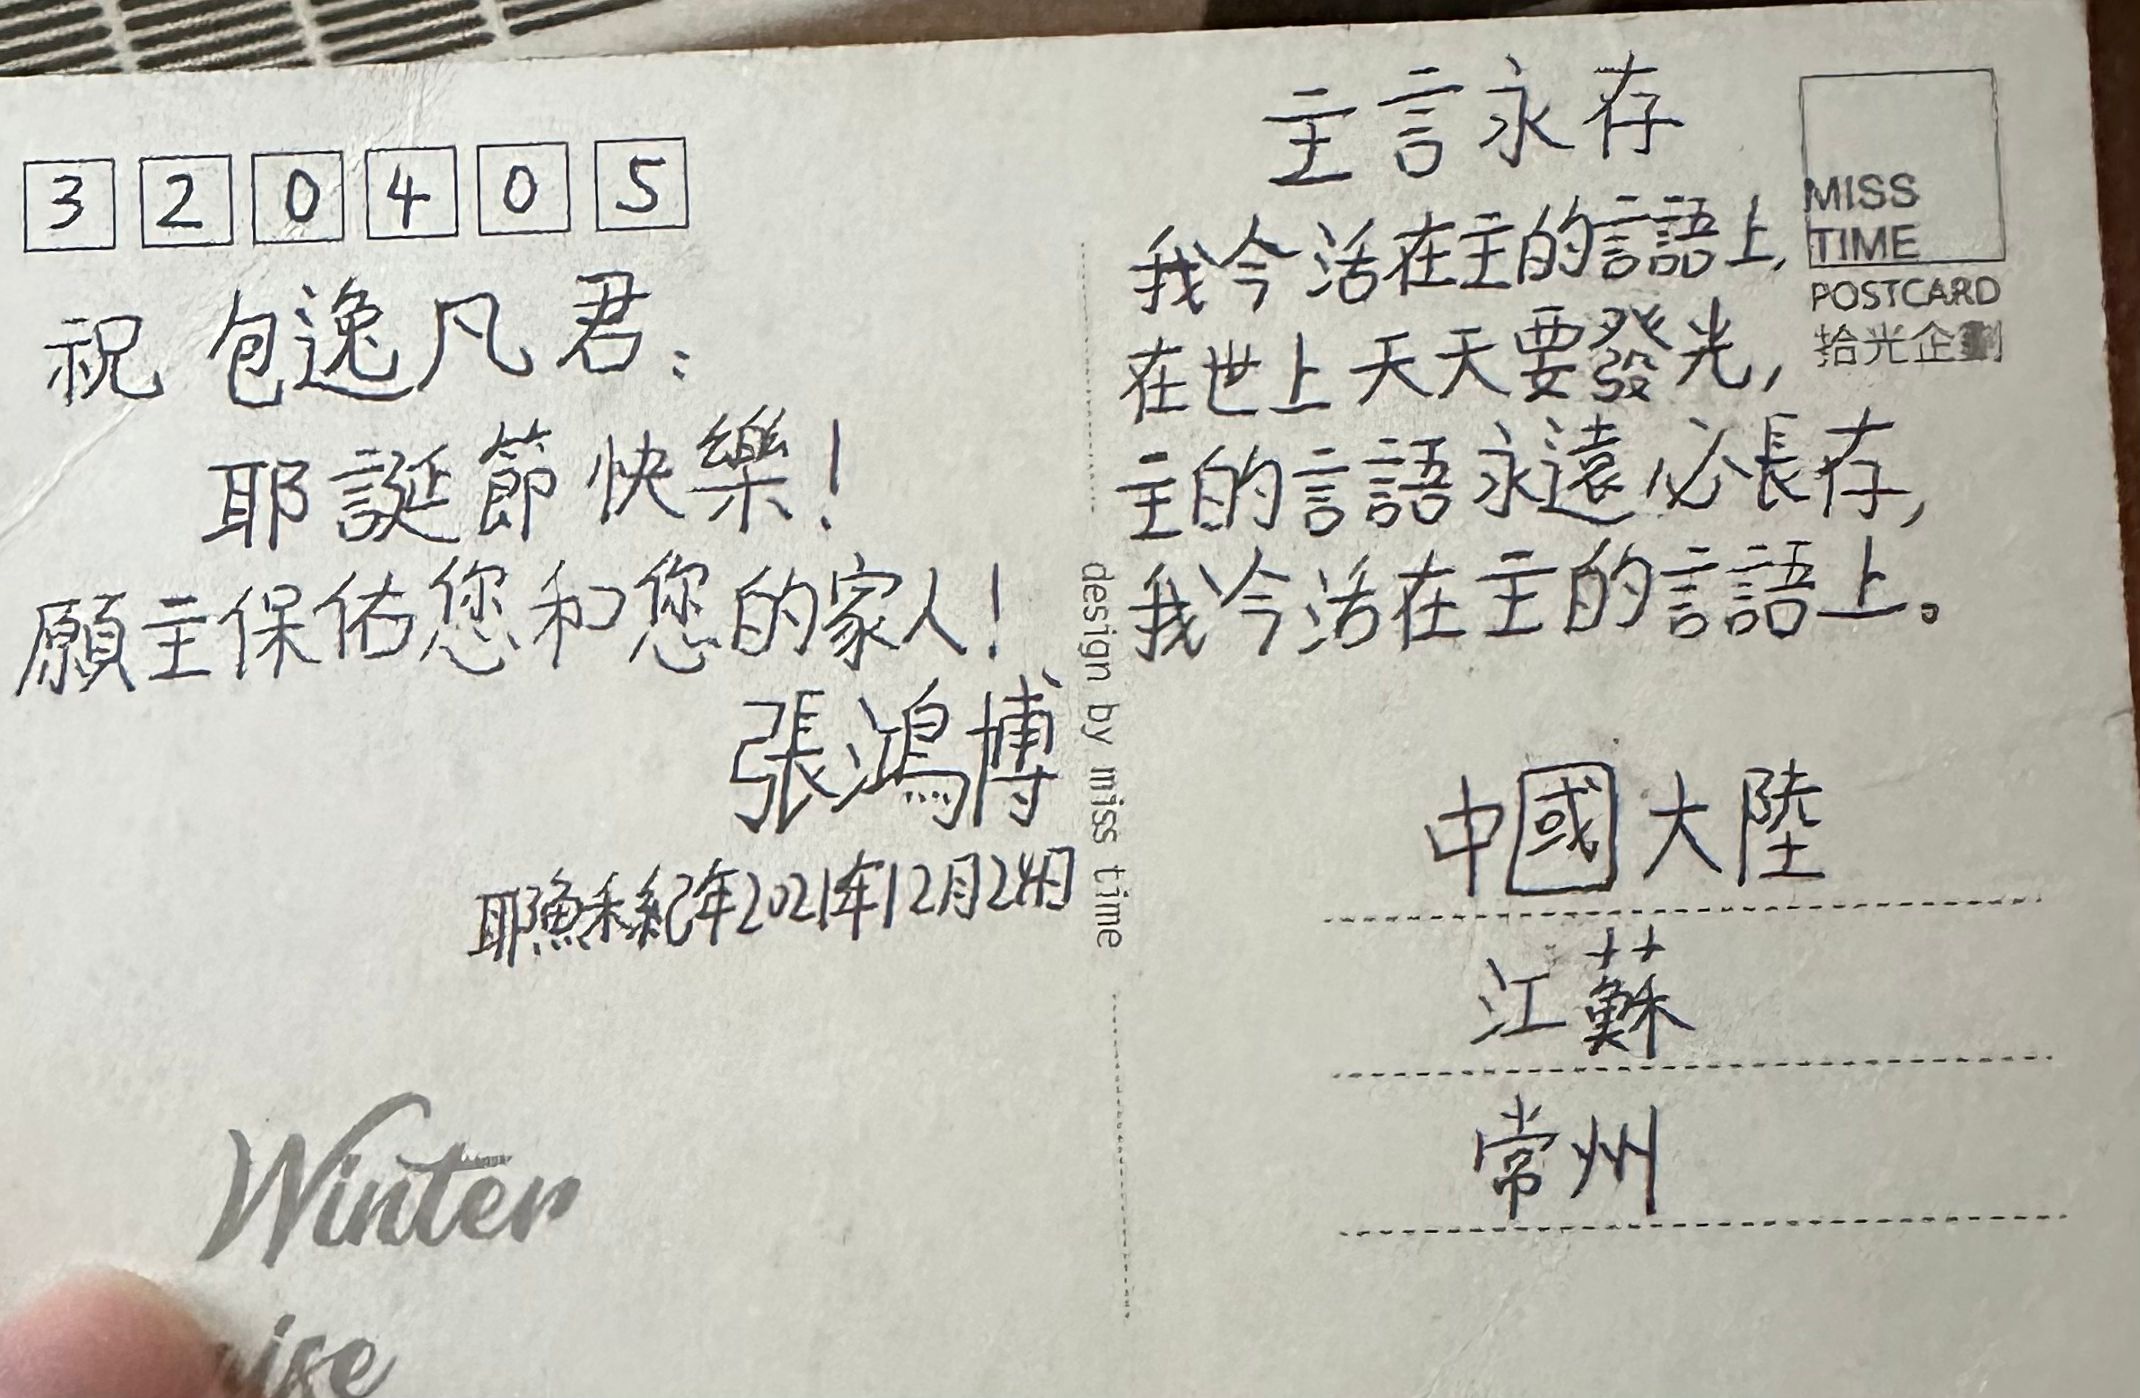 320405
祝 包逸凡 君:
耶誕節快樂!
願主保佑您和您的家人!
張鴻博
耶穌紀年2021年12月24日
Winter
design by miss time
主言永存
我今活在主的言語上,
在世上天天要發光,
主的言語永遠必長存,
我今活在主的言語上。
MISS
TIME
POSTCARD
拾光企劃
中國大陸
江蘇
常州